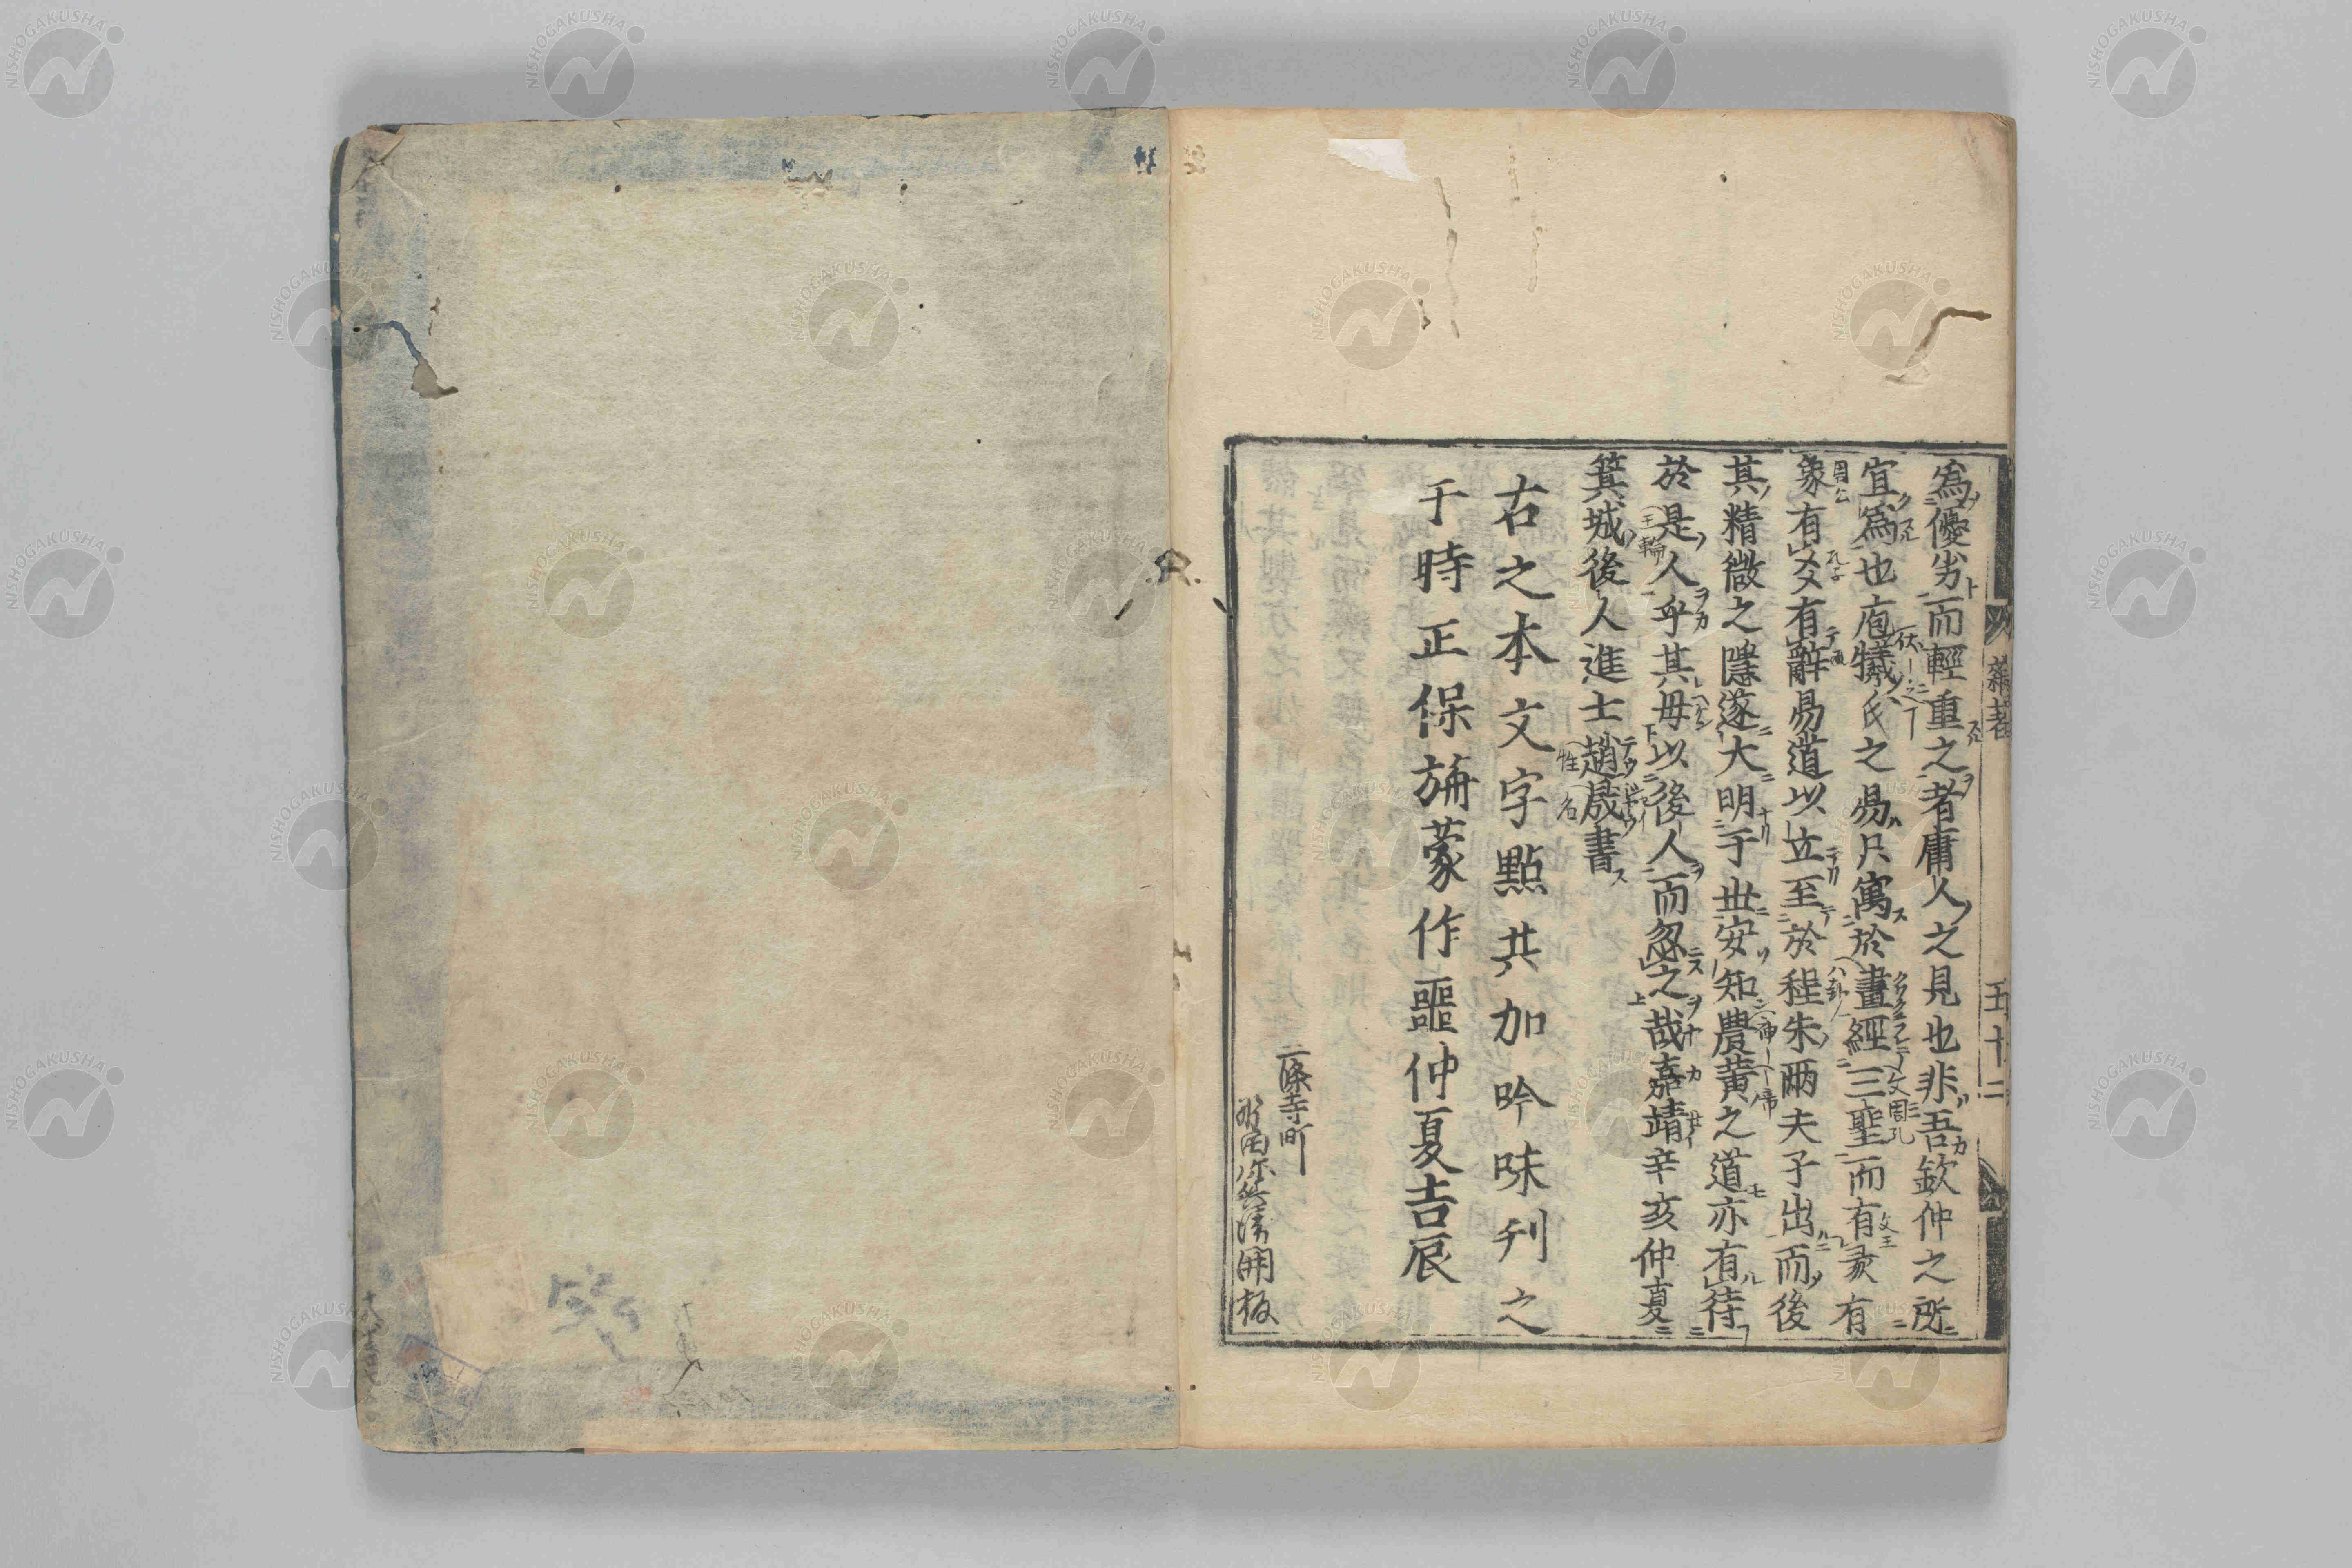 爲優劣而輕重之者庸人之見也非吾欽仲之所
宜爲也庖犧氏之易只寓於畫經三聖而有彖有
象有爻有辭易道以立至於程朱兩夫子出而後
其精微之隱遂大明于世安知農黃之道亦有待
於是人乎其毋以後人而忽之哉嘉靖辛亥仲夏
箕城後人進士趙晟書
右之本文字點共加吟味刋之
于時正保旃蒙作噩仲夏吉辰
二條寺町
開板
雜著
五十二
NISHOGAKUSHA